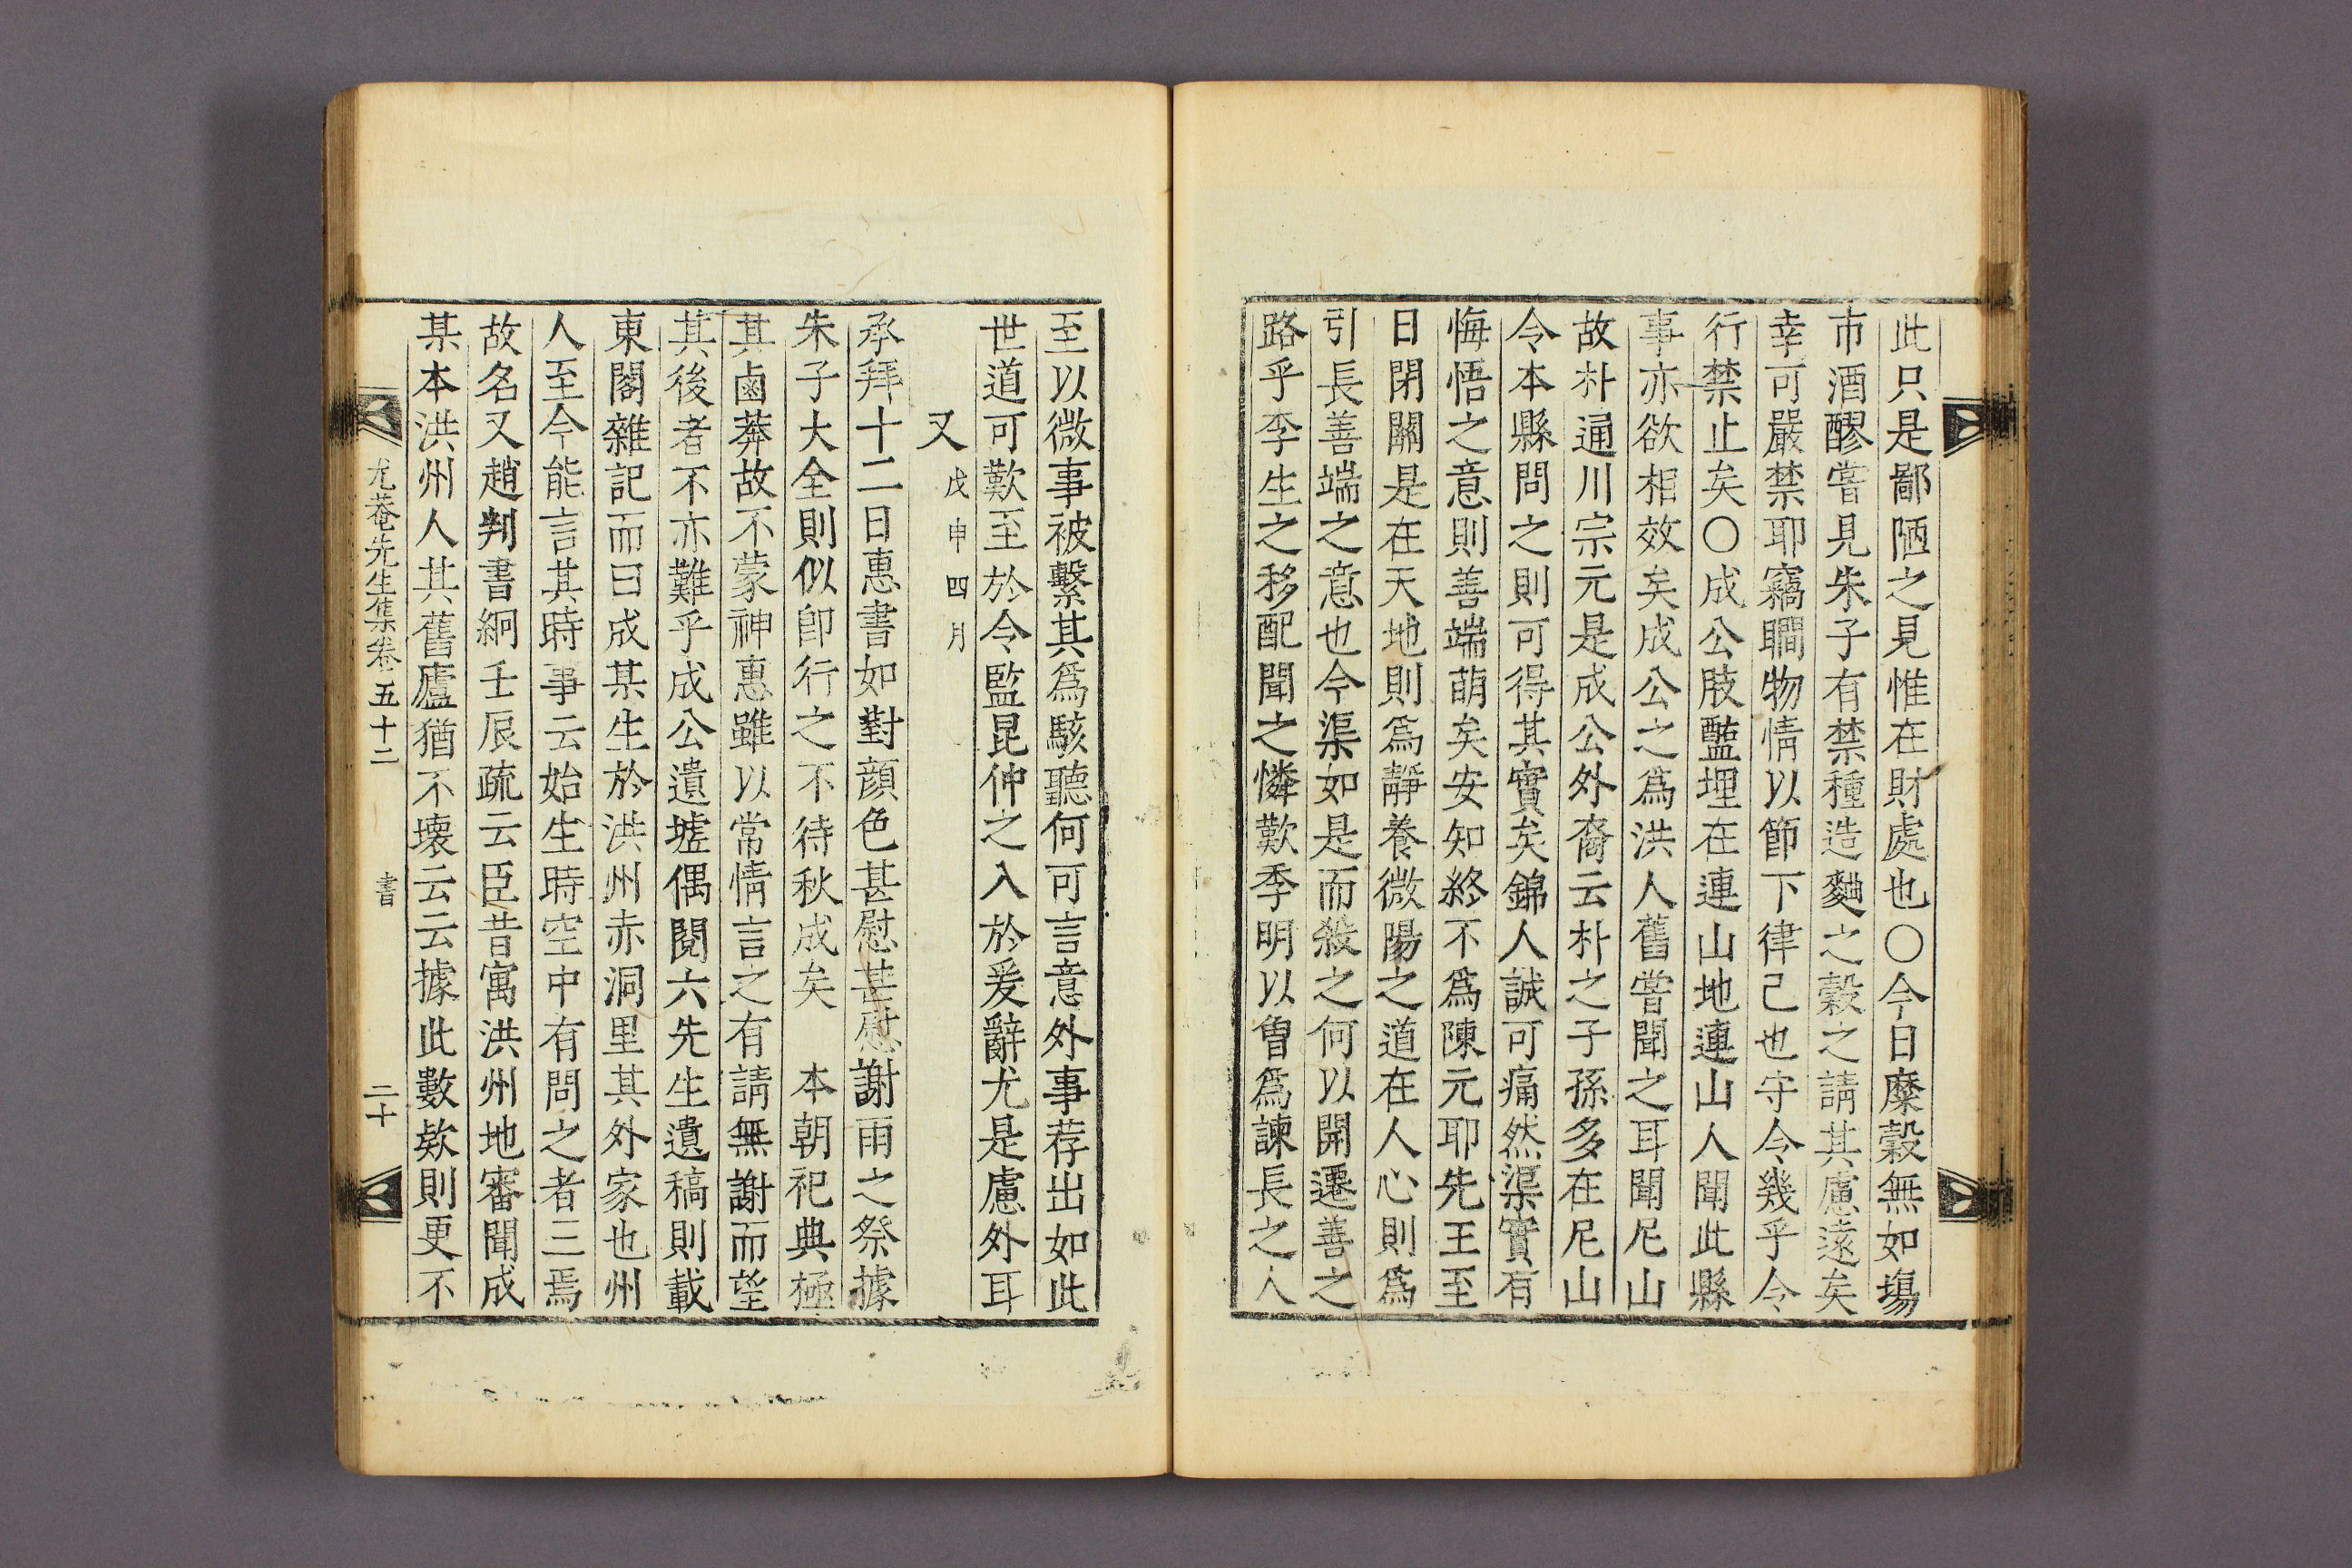 此只是鄙陋之見惟在財處也○今日糜穀無如場
市酒醪嘗見朱子有禁種造麴之穀之請其慮遠矣
幸可嚴禁耶竊瞷物情以節下律己也守令幾乎令
行禁止矣○成公肢醢埋在連山地連山人聞此縣
事亦欲相效矣成公之爲洪人舊嘗聞之耳聞尼山
故朴通川宗元是成公外裔云朴之子孫多在尼山
令本縣問之則可得其實矣錦人誠可痛然渠實有
悔悟之意則善端萌矣安知終不爲陳元耶先王至
日閉關是在天地則爲靜養微陽之道在人心則爲
引長善端之意也今渠如是而殺之何以開遷善之
路乎李生之移配聞之憐歎季明以曾爲諫長之人
至以微事被繫其爲駭聽何可言意外事荐出如此
世道可歎至於令監昆仲之入於爰辭尤是慮外耳
又 戊申四月
承拜十二日惠書如對顔色甚慰甚慰謝雨之祭據
朱子大全則似卽行之不待秋成矣 本朝祀典極
其鹵莽故不蒙神惠雖以常情言之有請無謝而望
其後者不亦難乎成公遺墟偶閱六先生遺稿則載
東閣雜記而曰成某生於洪州赤洞里其外家也州
人至今能言其時事云始生時空中有問之者三焉
故名又趙判書絅壬辰疏云臣昔寓洪州地審聞成
某本洪州人其舊廬猶不壞云云據此數欵則更不
尤菴先生集卷五十二 書 二十